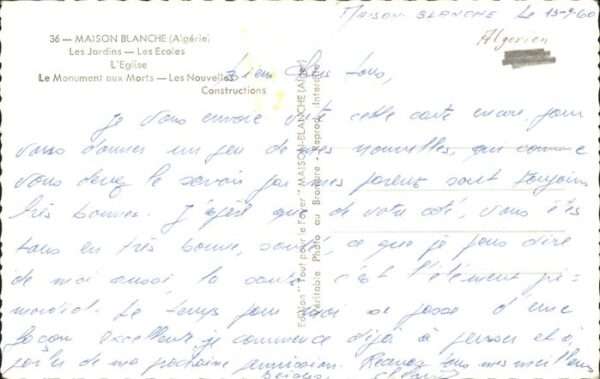 MAISON BLANCHE le 13-9-60
36 — MAISON BLANCHE (Algérie)
Les Jardins — Les Ecoles
L'Eglise
Le Monument aux Morts — Les Nouvelles
Constructions
Algerien
Bien chers tous,
Je vous envoie cette carte encore pour
vous donner un peu de mes nouvelles, qui comme
vous devez le savoir par mes parents sont toujours
très bonnes. J'espère que de votre coté, vous êtes
tous en très bonne santé, ce que je puis dire
de moi aussi, la santé c'est l'élément pri-
mordial. Le temps pour moi se passe d'une
façon excellente, je commence déjà à penser et à
parler de ma prochaine permission. Recevez tous mes meilleurs
baisers
Edition "Tout pour le Foyer" MAISON-BLANCHE (Alger)
Véritable Photo au Bromure - Reprod. Interdite